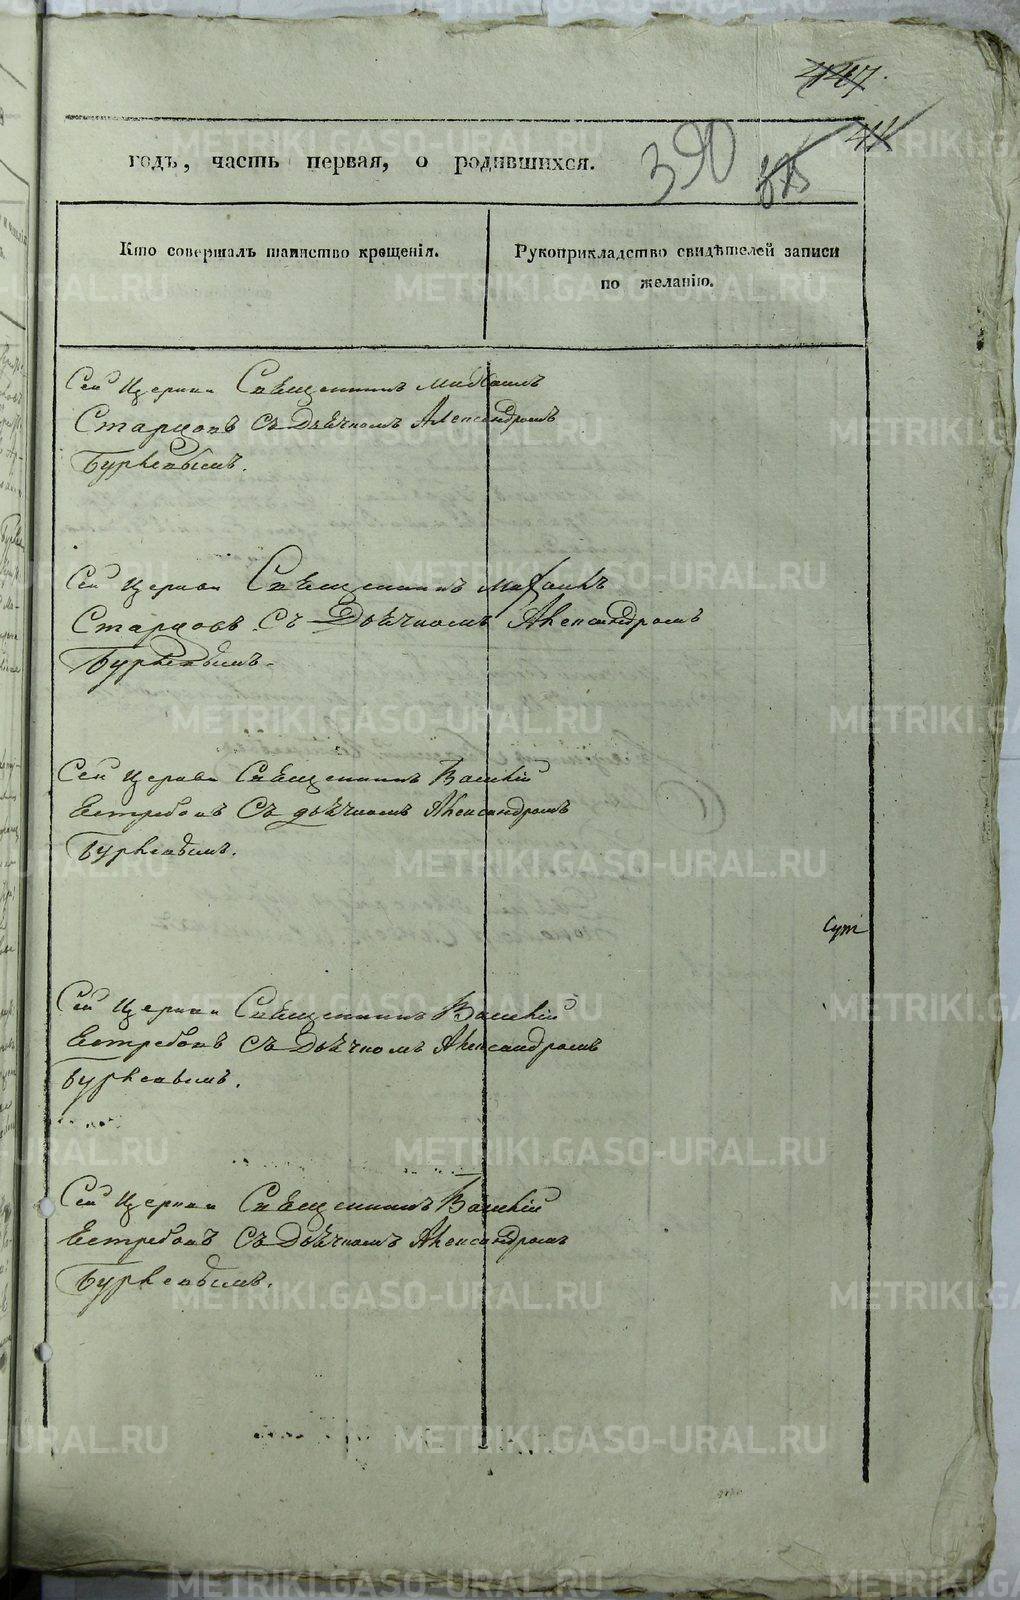 447.
44
годъ, часть первая, о родившихся. 390
Кто совершалъ таинство крещенія.
Рукоприкладство свидѣтелей записи
по желанію.
Сей Церкви Священникъ Михаилъ
Старцовъ съ Дьячкомъ Александромъ
Бурнѣвымъ.
Сей Церкви Священникъ Михаилъ
Старцовъ съ Дьячкомъ Александромъ
Сей Церкви Священникъ Василій
Ястребовъ съ дьячкомъ Александромъ
Сей Церкви Священникъ Василій
Ястребовъ съ Дьячкомъ Александромъ
Сей Церкви Священникъ Василій
Ястребовъ съ Дьячкомъ Александромъ
METRIKI.GASO-URAL.RU